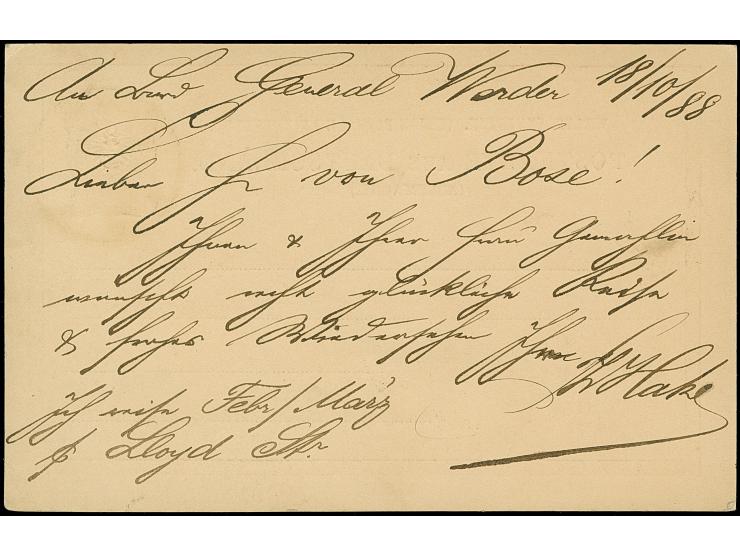 An Bord General Werder 18/10/88
Lieber Hr von Bose!
Ihnen & Ihrer Frau Gemahlin
wünscht recht glückliche Reise
& frohes Wiedersehen Ihr Hake
Ich reise Febr/März
p Lloyd Str.